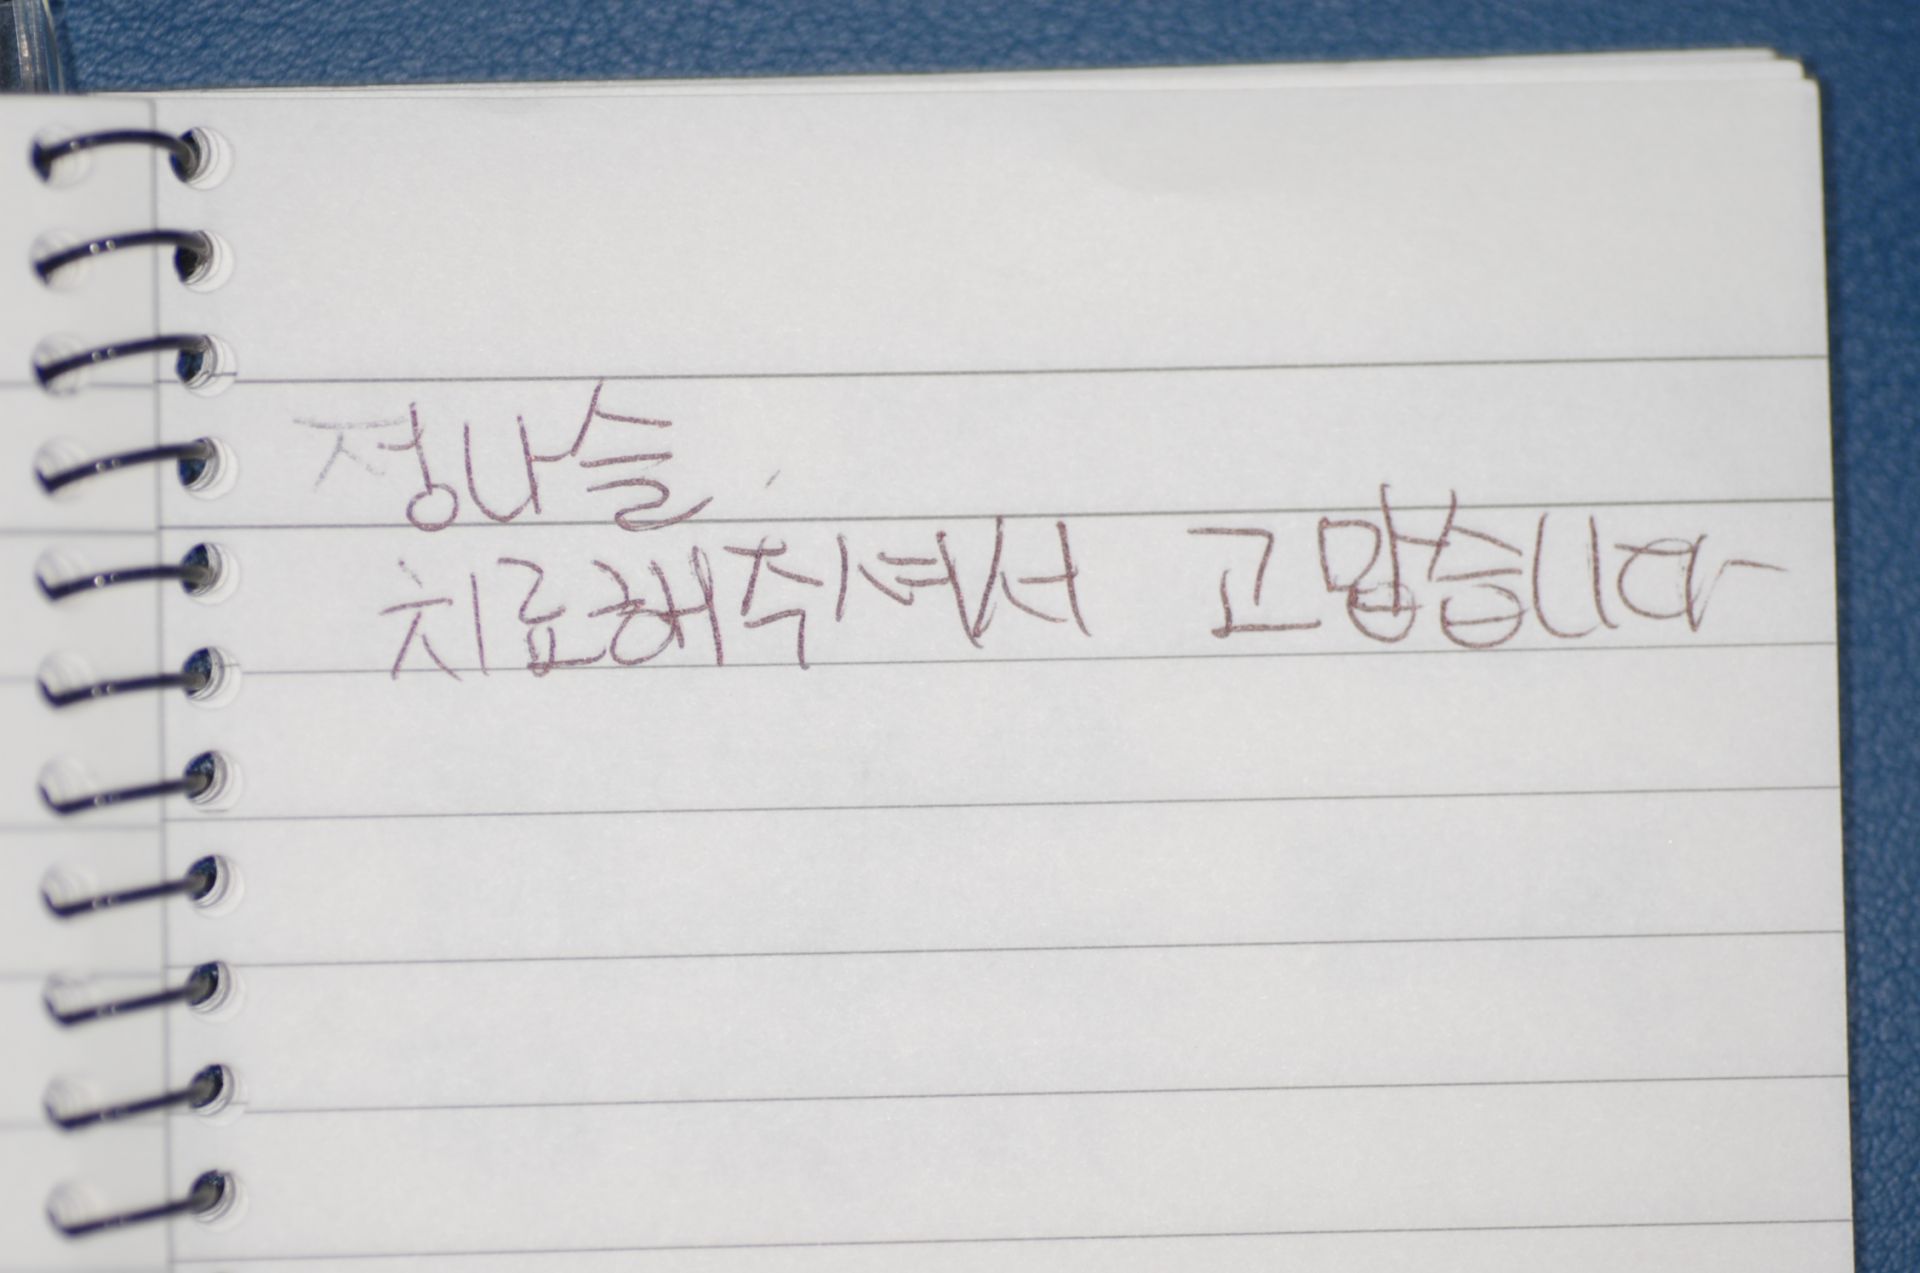 정나슬
치료해주셔서 고맙습니다